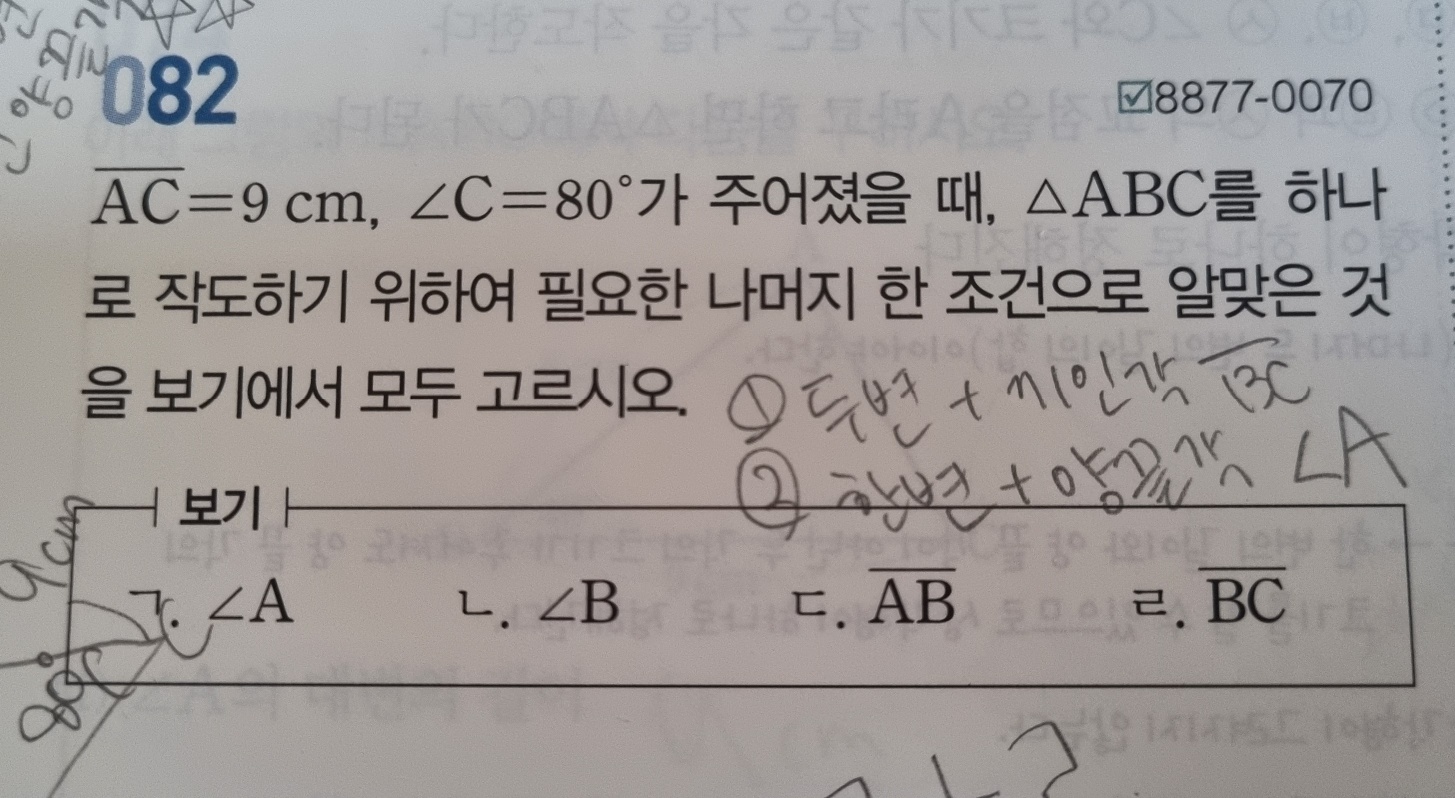 082
☑8877-0070
AC=9 cm, ∠C=80°가 주어졌을 때, △ABC를 하나
로 작도하기 위하여 필요한 나머지 한 조건으로 알맞은 것
을 보기에서 모두 고르시오.
① 두변 + 끼인각 BC
② 한변 + 양끝각 ∠A
보기
9cm
ㄱ. ∠A ㄴ. ∠B ㄷ. AB ㄹ. BC
80°